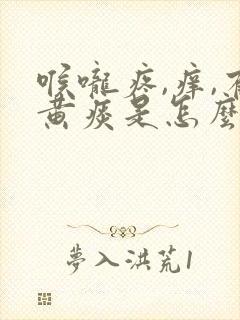 喉嚨疼,痒,有
黄痰是怎麼
夢入洪荒1